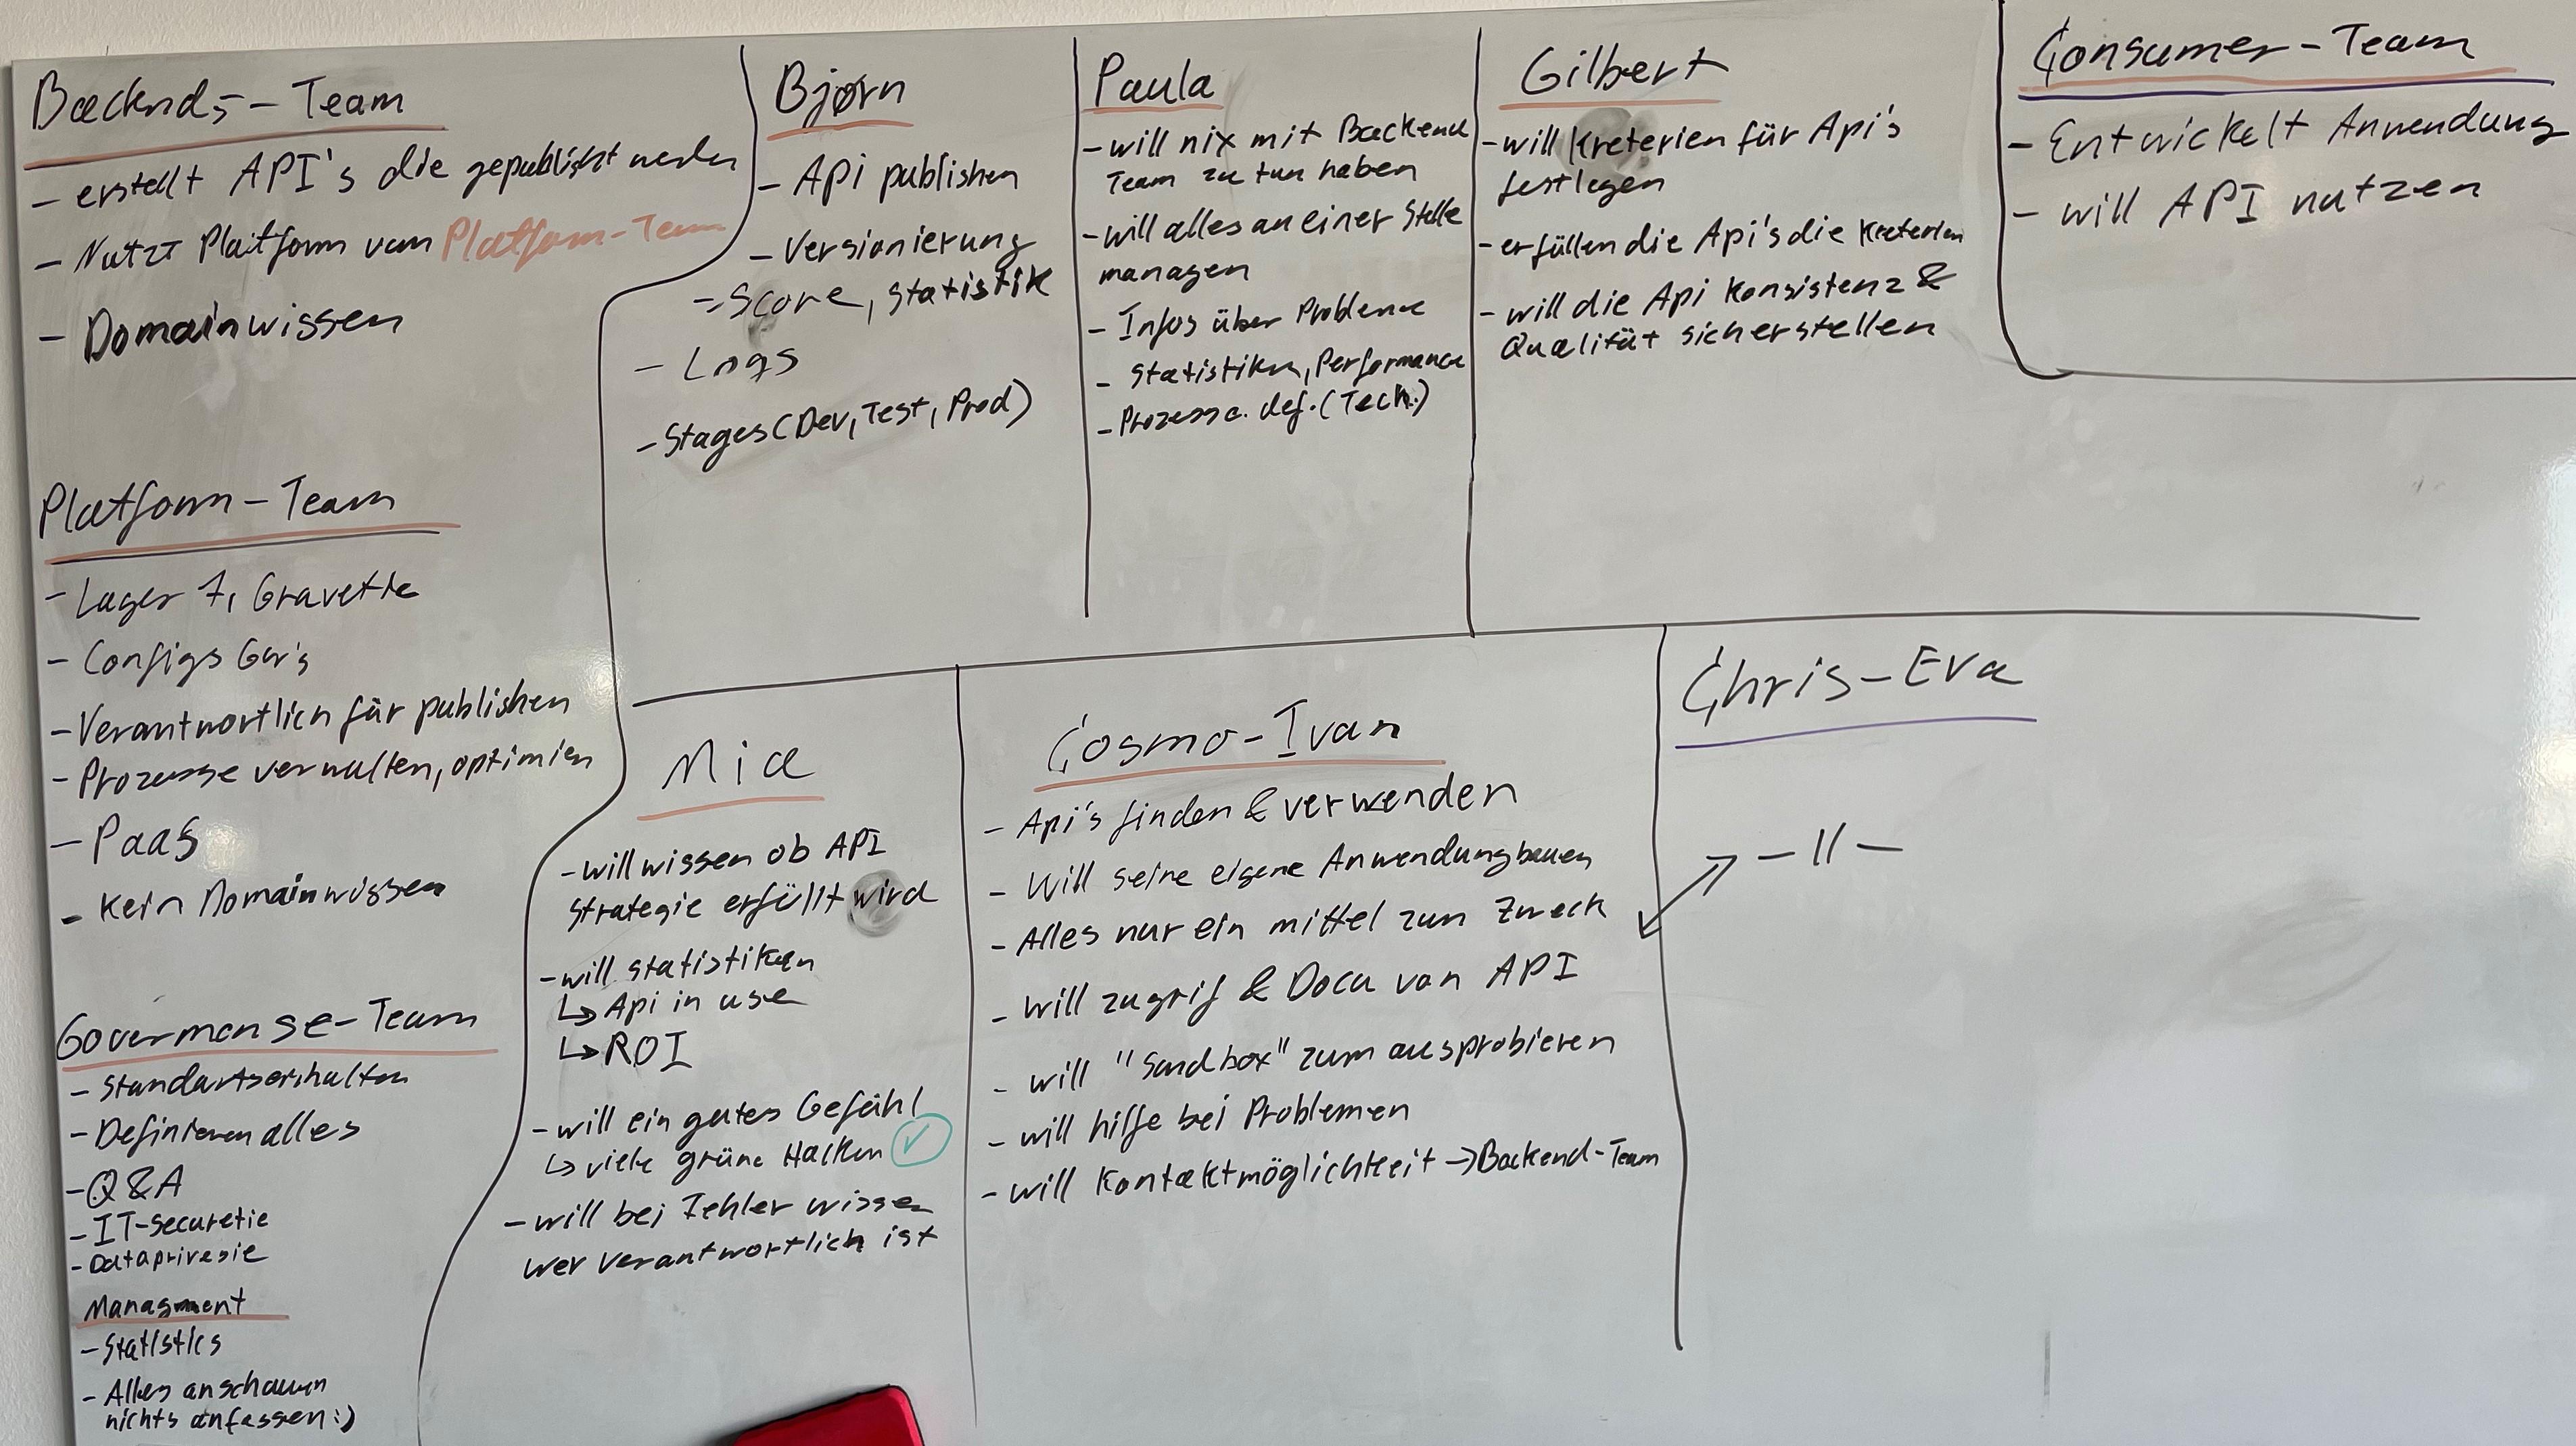 Backend-Team
- erstellt API's die gepublisht werden
- Nutzt Plattform vom Platform-Team
- Domainwissen
Platform-Team
- Lager 7, Gravette
- Configs Gw's
- Verantwortlich für publishen
- Prozesse verwalten, optimien
- PaaS
- Kein Domainwissen
Govermense-Team
- Standarts erhalten
- Definieren alles
- Q&A
- IT-securetie
- Dataprivesie
Managment
- Statistics
- Alles anschauen
nichts anfassen :)
Bjørn
- Api publishen
- Versionierung
- Score, Statistik
- Logs
- Stages (Dev, Test, Prod)
Paula
- will nix mit Backend
Team zu tun haben
- will alles an einer Stelle
managen
- Infos über Probleme
- Statistiken, Performance
- Prozesse def. (Tech.)
Gilbert
- will Kreterien für Api's
festlegen
- erfüllen die Api's die Kreterien
- will die Api Konsistenz &
Qualität sicherstellen
Consumer-Team
- Entwickelt Anwendung
- will API nutzen
Mia
- will wissen ob API
Strategie erfüllt wird
- will statistiken
↳ Api in use
↳ ROI
- will ein gutes Gefühl
↳ viele grüne Hacken ✓
- will bei Fehler wissen
wer verantwortlich ist
Cosmo-Ivan
- Api's finden & verwenden
- Will seine eigene Anwendung bauen
- Alles nur ein mittel zum Zweck
- will zugrif & Docu von API
- will "Sandbox" zum ausprobieren
- will hilfe bei Problemen
- will Kontaktmöglichkeit → Backend-Team
Chris-Eva
- || -